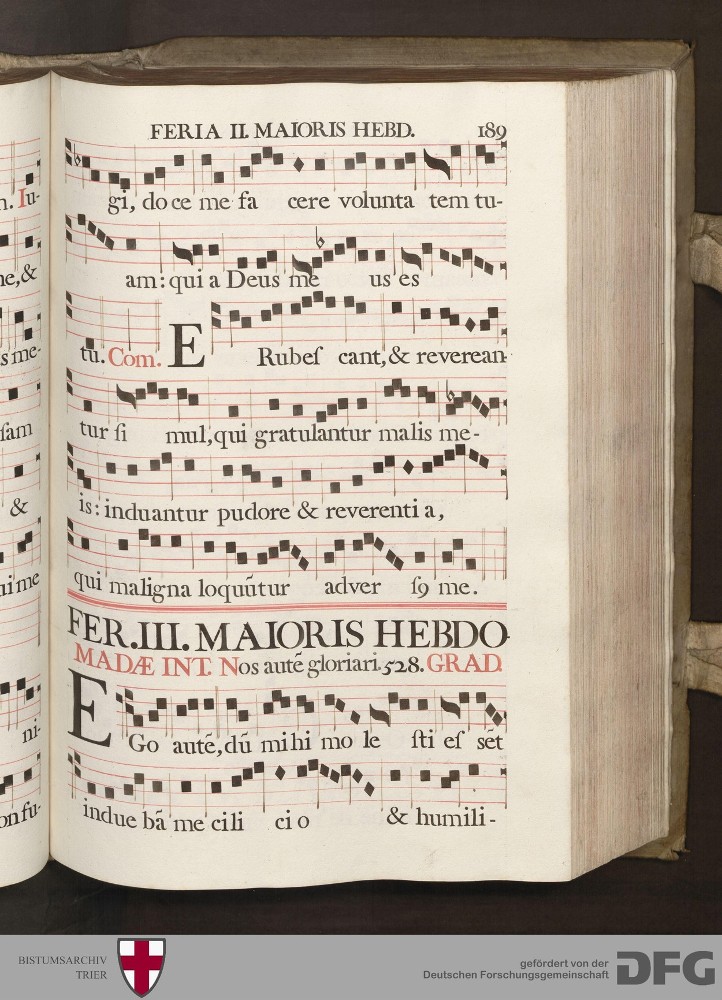 FERIA II. MAIORIS HEBD. 189
gi, do ce me fa cere volunta tem tu-
am: qui a Deus me us es
tu. Com. E Rubeſ cant, & reverean-
tur ſi mul, qui gratulantur malis me-
is: induantur pudore & reverenti a,
qui maligna loquūtur adver ſꝯ me.
FER. III. MAIORIS HEBDO-
MADÆ INT. Nos autē gloriari. 528. GRAD.
E Go autē, dū mihi mo le ſti eſ sēt
indue bā me ci li ci o & humili-
n. Iu-
ne, &
s me-
ſam
&
ui me
ni-
onfu-
BISTUMSARCHIV
TRIER
gefördert von der
Deutschen Forschungsgemeinschaft
DFG